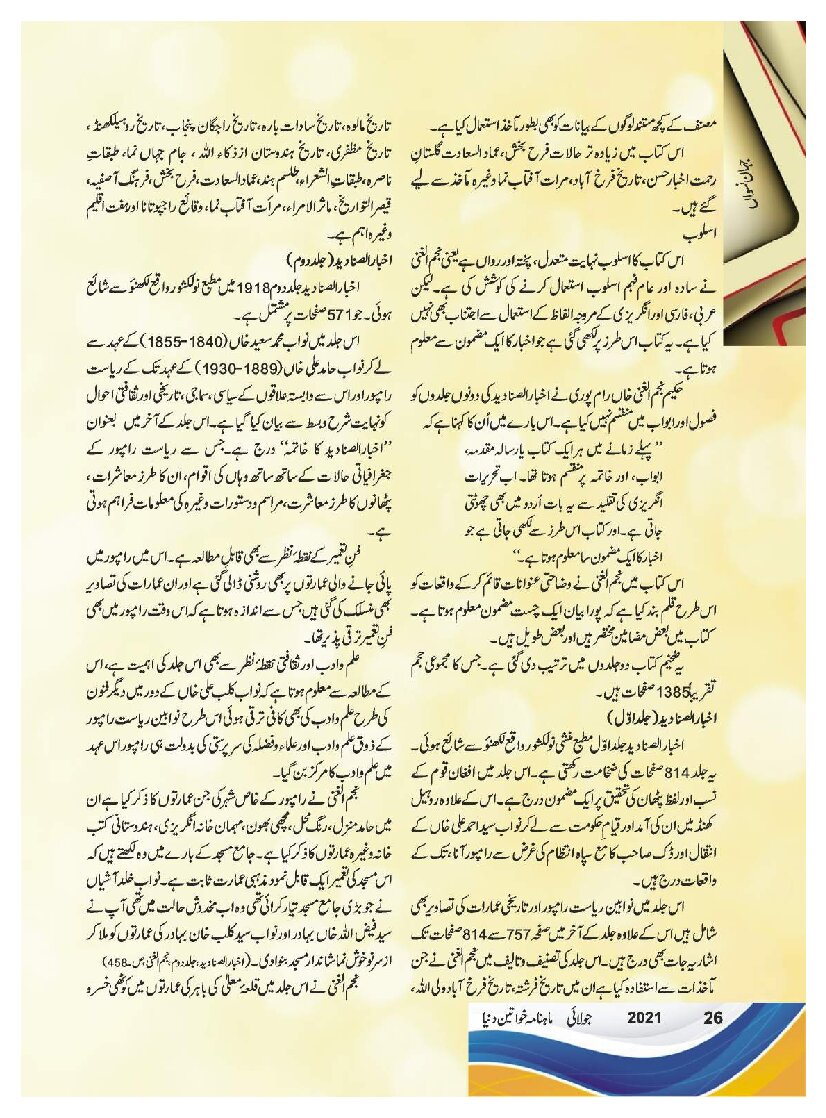 جہان نسواں
مصنف کے کچھ مستند لوگوں کے بیانات کو بھی بطور مآخذ استعمال کیا ہے۔
اس کتاب میں زیادہ تر حالات فرح بخش، عماد السعادت گلستانِ
رحمت اخبار حسن، تاریخ فرخ آباد، مرات آفتاب نما وغیرہ مآخذ سے لیے
گئے ہیں۔
اسلوب
اس کتاب کا اسلوب نہایت معتدل، پختہ اور رواں ہے یعنی نجم الغنی
نے سادہ اور عام فہم اسلوب استعمال کرنے کی کوشش کی ہے۔ لیکن
عربی، فارسی اور انگریزی کے مروجہ الفاظ کے استعمال سے اجتناب بھی نہیں
کیا ہے۔ یہ کتاب اس طرز پر لکھی گئی ہے جو اخبار کا ایک مضمون سے معلوم
ہوتا ہے۔
حکیم نجم الغنی خاں رام پوری نے اخبار الصنادید کی دونوں جلدوں کو
فصول اور ابواب میں منقسم نہیں کیا ہے۔ اس بارے میں اُن کا کہنا ہے کہ
’’پہلے زمانے میں ہر ایک کتاب یا رسالہ مقدمہ،
ابواب، اور خاتمہ پر منقسم ہوتا تھا۔ اب تحریرات
انگریزی کی تقلید سے یہ بات اُردو میں بھی چھوٹتی
جاتی ہے۔ اور کتاب اس طرز سے لکھی جاتی ہے جو
اخبار کا ایک مضمون سا معلوم ہوتا ہے۔‘‘
اس کتاب میں نجم الغنی نے وضاحتی عنوانات قائم کر کے واقعات کو
اس طرح قلم بند کیا ہے کہ پورا بیان ایک چست مضمون معلوم ہوتا ہے۔
کتاب میں بعض مضامین مختصر ہیں اور بعض طویل ہیں۔
یہ ضخیم کتاب دو جلدوں میں ترتیب دی گئی ہے۔ جس کا مجموعی حجم
تقریباً 1385 صفحات ہیں۔
اخبار الصنادید (جلد اوّل)
اخبار الصنادید جلد اوّل مطبع منشی نولکشور واقع لکھنؤ سے شائع ہوئی۔
یہ جلد 814 صفحات کی ضخامت رکھتی ہے۔ اس جلد میں افغان قوم کے
نسب اور لفظ پٹھان کی تحقیق پر ایک مضمون درج ہے۔ اس کے علاوہ روہیل
کھنڈ میں ان کی آمد اور قیام حکومت سے لے کر نواب سید احمد علی خاں کے
انتقال اور ڈک صاحب کا مع سپاہ انتظام کی غرض سے رامپور آنا، تک کے
واقعات درج ہیں۔
اس جلد میں نوابین ریاست رامپور اور تاریخی عمارات کی تصاویر بھی
شامل ہیں اس کے علاوہ جلد کے آخر میں صفحہ 757 سے 814 صفحات تک
اشاریہ جات بھی درج ہیں۔ اس جلد کی تصنیف و تالیف میں نجم الغنی نے جن
مآخذات سے استفادہ کیا ہے ان میں تاریخ فرشتہ، تاریخ فرخ آباد ولی اللہ،
تاریخ مالوہ، تاریخ سادات بارہ، تاریخ راجگان پنجاب، تاریخ روہیلکھنڈ،
تاریخ مظفری، تاریخ ہندوستان از ذکاء اللہ، جام جہاں نما، طبقاتِ
ناصرہ، طبقات الشعراء، طلسم ہند، عماد السعادت، فرح بخش، فرہنگ آصفیہ،
قیصر التواریخ، ماثر الامراء، مرأت آفتاب نما، وقائع راجپوتانا اور ہفت اقلیم
وغیرہ اہم ہے۔
اخبار الصنادید (جلد دوم)
اخبار الصنادید جلد دوم 1918 میں مطبع نولکشور واقع لکھنؤ سے شائع
ہوئی۔ جو 571 صفحات پر مشتمل ہے۔
اس جلد میں نواب محمد سعید خاں (1840-1855) کے عہد سے
لے کر نواب حامد علی خاں (1889-1930) کے عہد تک کے ریاست
رامپور اور اس سے وابستہ علاقوں کے سیاسی، سماجی، تاریخی اور ثقافتی احوال
کو نہایت شرح و بسط سے بیان کیا گیا ہے۔ اس جلد کے آخر میں بعنوان
’’اخبار الصنادید کا خاتمہ‘‘ درج ہے۔ جس سے ریاست رامپور کے
جغرافیائی حالات کے ساتھ ساتھ وہاں کی اقوام، ان کا طرز معاشرات،
پٹھانوں کا طرز معاشرت، مراسم و دستورات وغیرہ کی معلومات فراہم ہوتی
ہے۔
فنِ تعمیر کے نقطۂ نظر سے بھی قابل مطالعہ ہے۔ اس میں رامپور میں
پائی جانے والی عمارتوں پر بھی روشنی ڈالی گئی ہے اور ان عمارات کی تصاویر
بھی منسلک کی گئی ہیں جس سے اندازہ ہوتا ہے کہ اس وقت رامپور میں بھی
فنِ تعمیر ترقی پذیر تھا۔
علم و ادب اور ثقافتی نقطۂ نظر سے بھی اس جلد کی اہمیت ہے، اس
کے مطالعہ سے معلوم ہوتا ہے کہ نواب کلب علی خاں کے دور میں دیگر فنون
کی طرح علم و ادب کی بھی کافی ترقی ہوئی اس طرح نوابین ریاست رامپور
کے ذوق علم و ادب اور علماء و فضلہ کی سرپرستی کی بدولت ہی رامپور اس عہد
میں علم و ادب کا مرکز بن گیا۔
نجم الغنی نے رامپور کے خاص شہر کی جن عمارتوں کا ذکر کیا ہے ان
میں حامد منزل، رنگ محل، مچھی بھون، مہمان خانہ انگریزی، ہندوستانی کتب
خانہ وغیرہ عمارتوں کا ذکر کیا ہے۔ جامع مسجد کے بارے میں وہ لکھتے ہیں کہ
اس مسجد کی تعمیر ایک قابل نمود مذہبی عمارت ثابت ہے۔ نواب خلد آشیاں
نے جو بڑی جامع مسجد تیار کرائی تھی وہ اب مخدوش حالت میں تھی آپ نے
سید فیض اللہ خاں بہادر اور نواب سید کلب خان بہادر کی عمارتوں کو ملا کر
از سر نو خوش نما شاندار مسجد بنوا دی۔ (اخبار الصنادید، جلد دوم، نجم الغنی، ص۔458)
نجم الغنی نے اس جلد میں قلعۂ معلیٰ کی باہر کی عمارتوں میں کوٹھی خسرو
26 2021 جولائی ماہنامہ خواتین دنیا